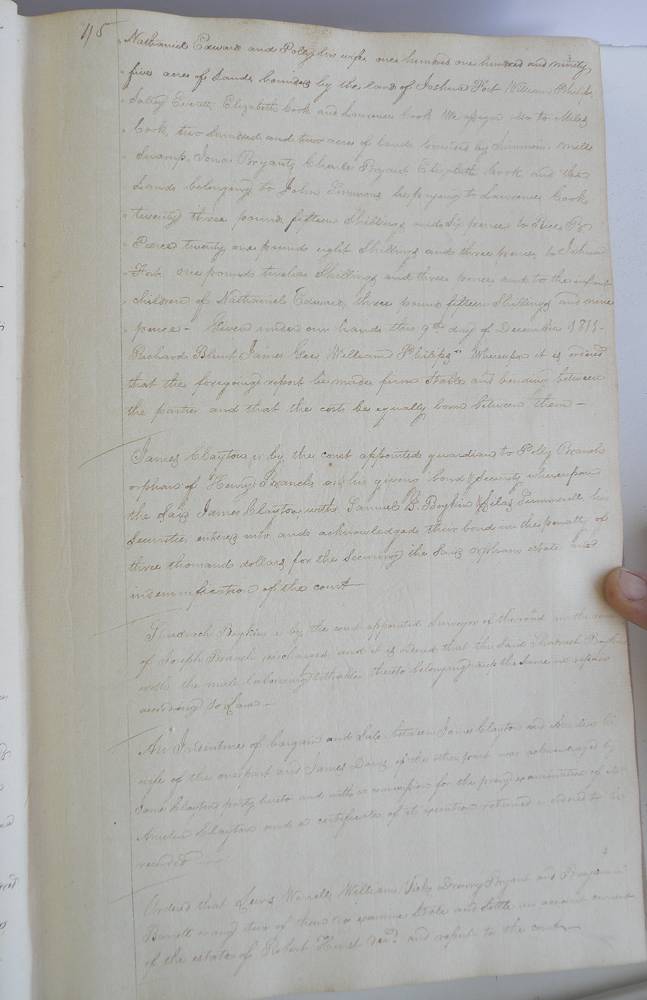 115
Nathaniel Edwards and Polly his wife one hundred one hundred and ninety
five acres of Lands bounded by the land of Joshua Fort William
Everett Elizabeth Cook and Lawrence Cook We assign also to Miles
Cook, two hundred and two acres of lands bounded by
Swamp, Jonas Bryant, Charles Bryant Elizabeth Cook and the
Lands belonging to John Simmons he paying to Lawrence Cook
twenty three pound fifteen Shillings and six pence to
twenty one pounds eight Shillings and three pence, to Joshua
Fort, one pounds twelve Shillings and three pence and to the infant
children of Nathaniel Edwards, three pound fifteen Shillings and nine
pence - Given under our hands this 9th day of December 1811 -
Richard Blunt, James Gee, William Phipps" Whereupon it is ordered
that the foregoing report be made firm Stable and binding between
the parties and that the costs be equally born between them -
James Clayton is by the court appointed guardian to Polly Branch
orphan of Henry Branch on his giving bond & Security whereupon
the said James Clayton with Samuel B. Boykin & Silas Summerell his
Securities entered into and acknowledged their bond in the penalty of
three thousand dollars for the Securing the said orphans estate and
indemnification of the court
Shadrach Boykin is by the court appointed Surveyor of the road in the room
of Joseph Branch and it is ordered that the said Shadrach Boykin
with the male labouring tithables thereto belonging keep the same in repair
according to Law -
An Indenture of bargain and Sale between James Clayton and his
wife of the one part and James Davis of the other part was acknowledged by
James Clayton party thereto and with a commission for the privy examination of
Clayton and a certificate of its execution returned is ordered to be
recorded
Ordered that Lewis Worrell, William Drewry Bryant and Benjamin
Barrett or any two of them do examine State and Settle an account current
of the estate of Robert Hurst decd and report to the court